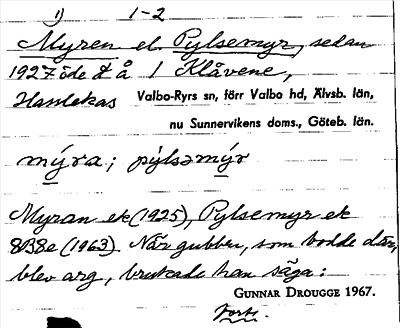 1) 1-2
Myren el. Pylsemyr, sedan
1927 öde t å 1 Klåvene,
Hasslekas Valbo-Ryrs sn, förr Valbo hd, Älvsb. län,
nu Sunnervikens doms., Göteb. län.
mýra; pýlsəmýr
Myran ek (1925), Pylsemyr ek
8B8e (1963). När gubben, som bodde där,
blev arg, brukade han säga:
GUNNAR DROUGGE 1967.
Forts.